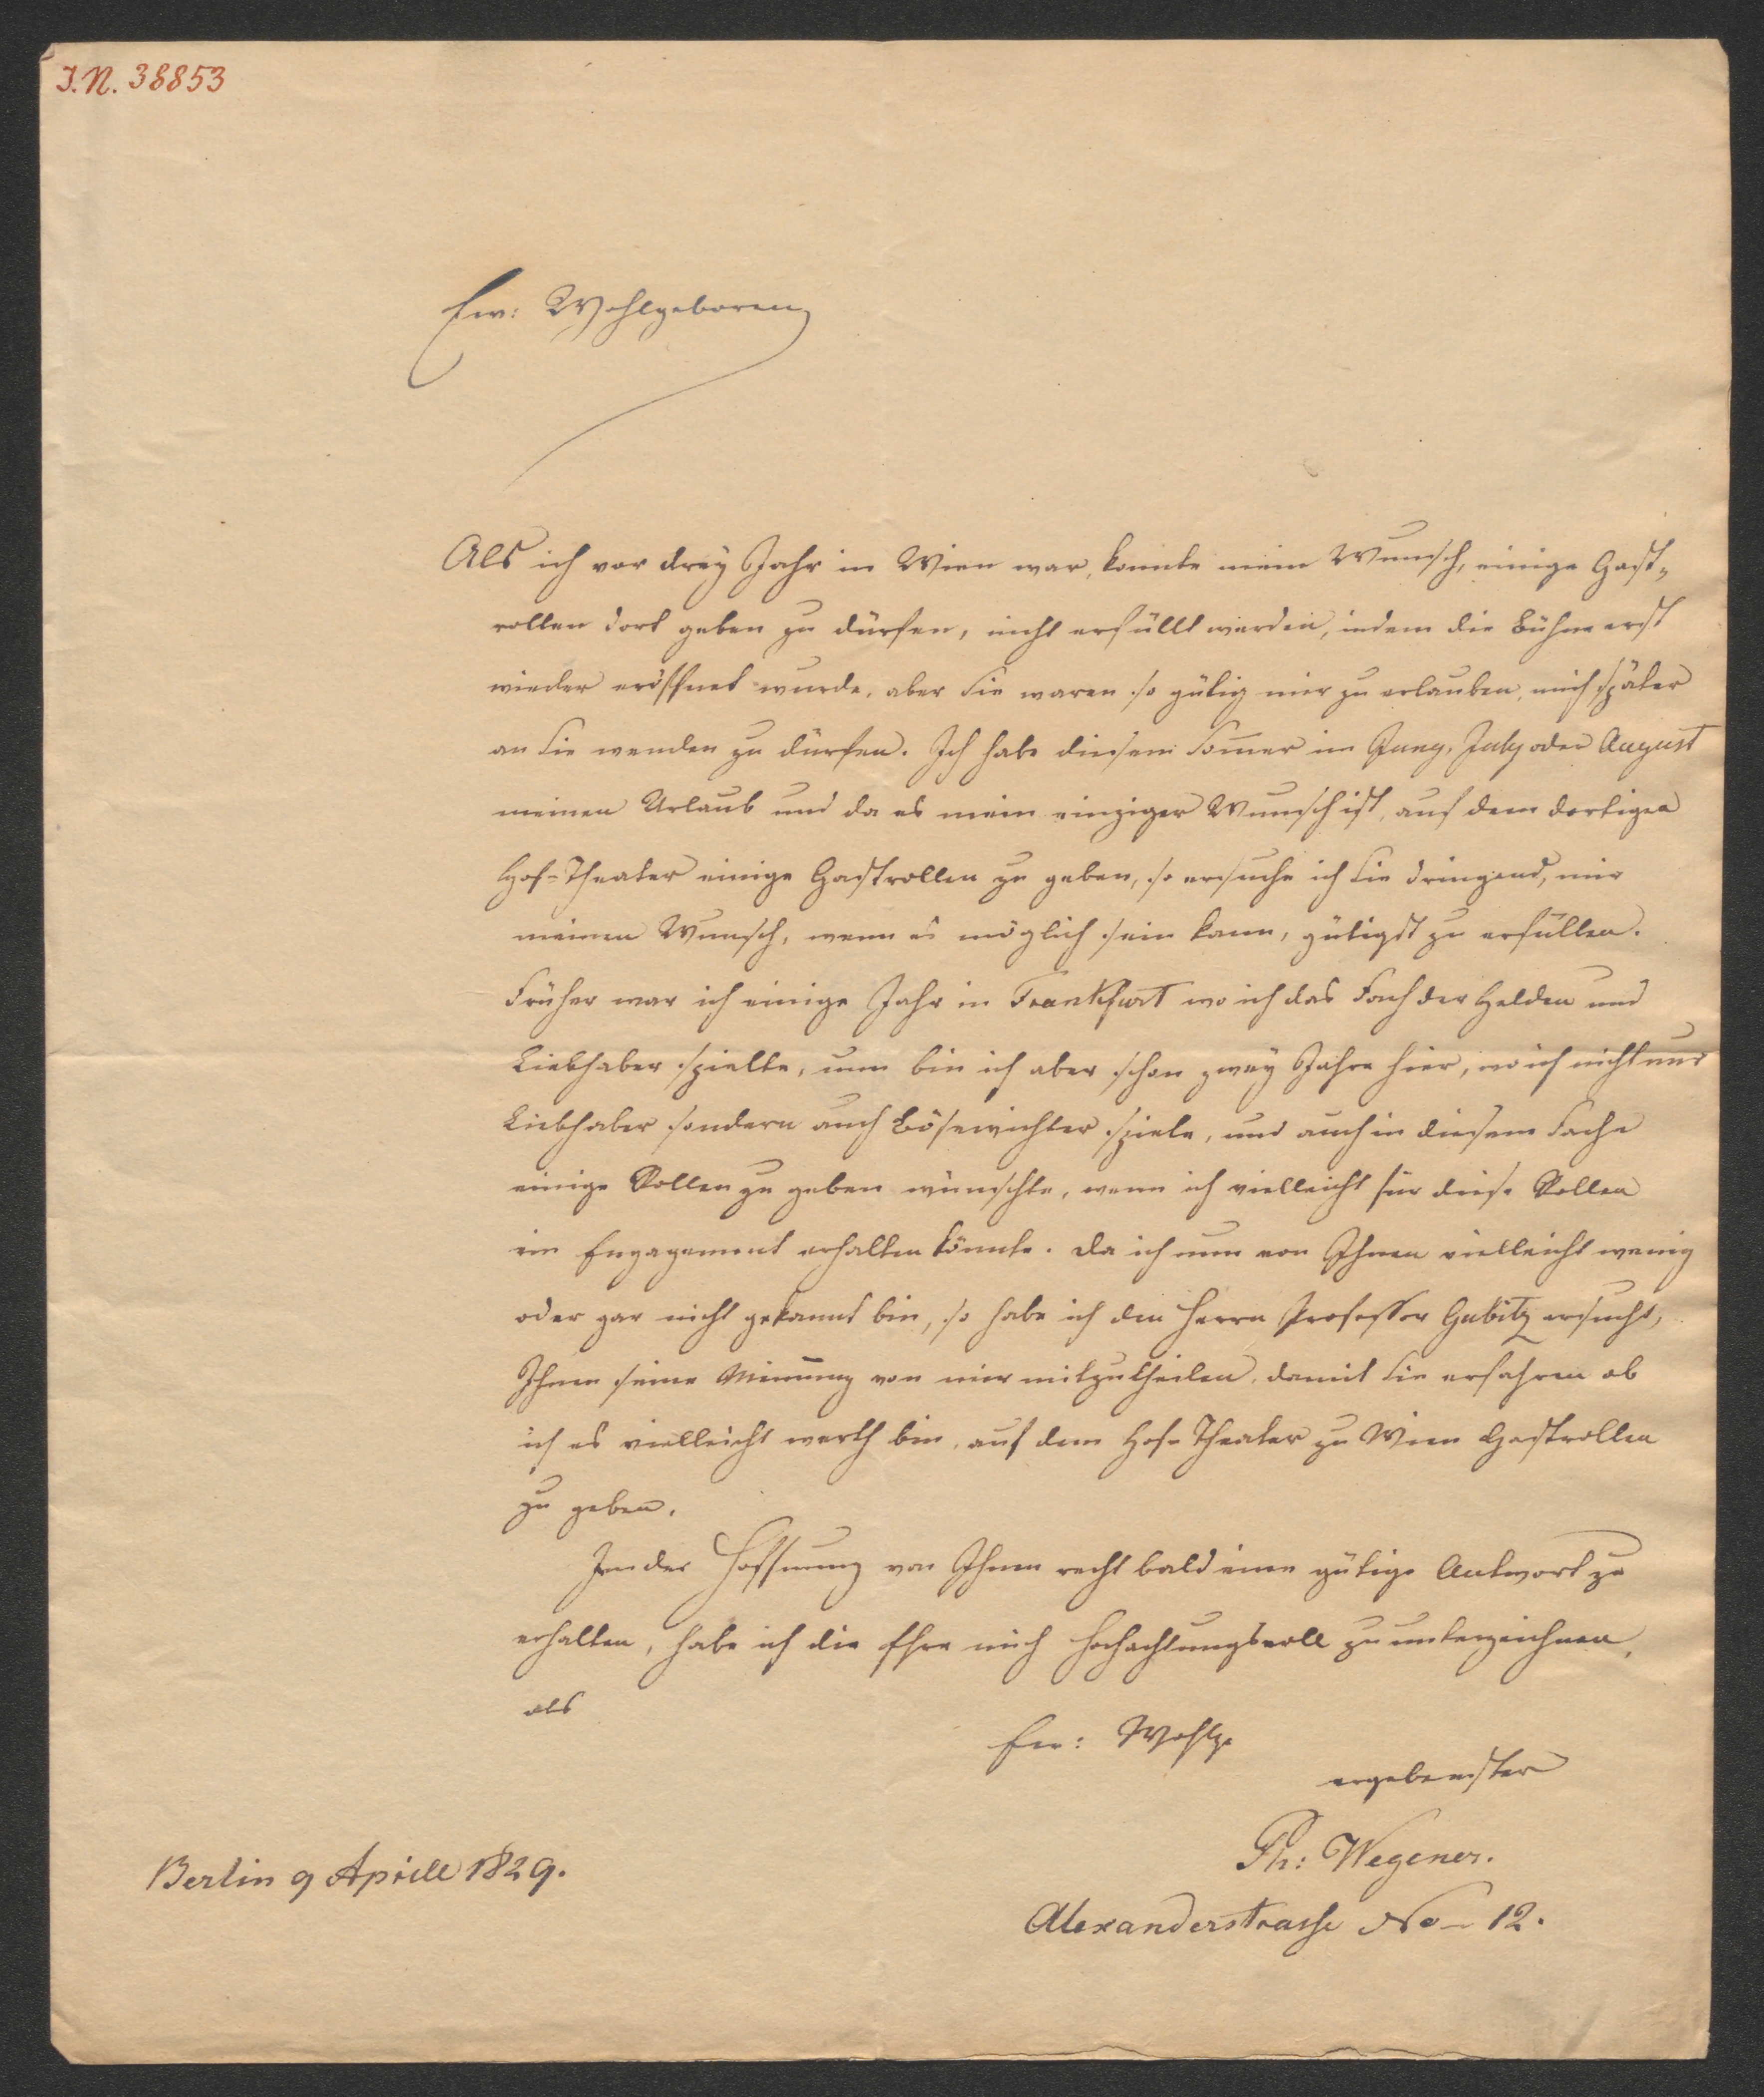 I.N. 38853
Ew: Wohlgeboren
Als ich vor drey Jahr in Wien war, konnte mein Wunsch, einige Gast-
rollen dort geben zu dürfen, nicht erfüllt werden, indem die Bühne erst
wieder eröffnet wurde, aber Sie waren so gütig mir zu erlauben, mich später
an Sie wenden zu dürfen. Ich habe diesem Som̄er im Juny, July oder August
meinen Urlaub und da es mein einziger Wunsch ist, auf dem dortigen
Hof-Theater einige Gastrollen zu geben, so ersuche ich Sie dringend, mir
meinen Wunsch, wenn es möglich sein kann, gütigst zu erfüllen.
Früher war ich einige Jahr in Frankfurt wo ich das Fach der Helden und
Liebhaber spielte, nun bin ich aber schon zwey Jahre hier, wo ich nicht nur
Liebhaber sondern auch Bösewichter spiele, und auch in diesem Fache
einige Rollen zu geben wünschte, wenn ich vielleicht für diese Rollen
ein Engagement erhalten könnte. Da ich nun von Ihnen vielleicht wenig
oder gar nicht gekannt bin, so habe ich den Herrn Professor Gubitz ersucht,
Ihnen seine Meinung von mir mitzutheilen, damit Sie erfahren ob
ich es vielleicht werth bin, auf dem Hof-Theater zu Wien Gastrollen
zu geben.
In der Hoffnung von Ihnen recht bald eine gütige Antwort zu
erhalten, habe ich die Ehre mich hochachtungsvoll zu unterzeichnen,
als
Ew: Wohlg.
ergebenster
Ph: Wegener.
Berlin 9 Aprill 1829.
Alexanderstrasse No 12.